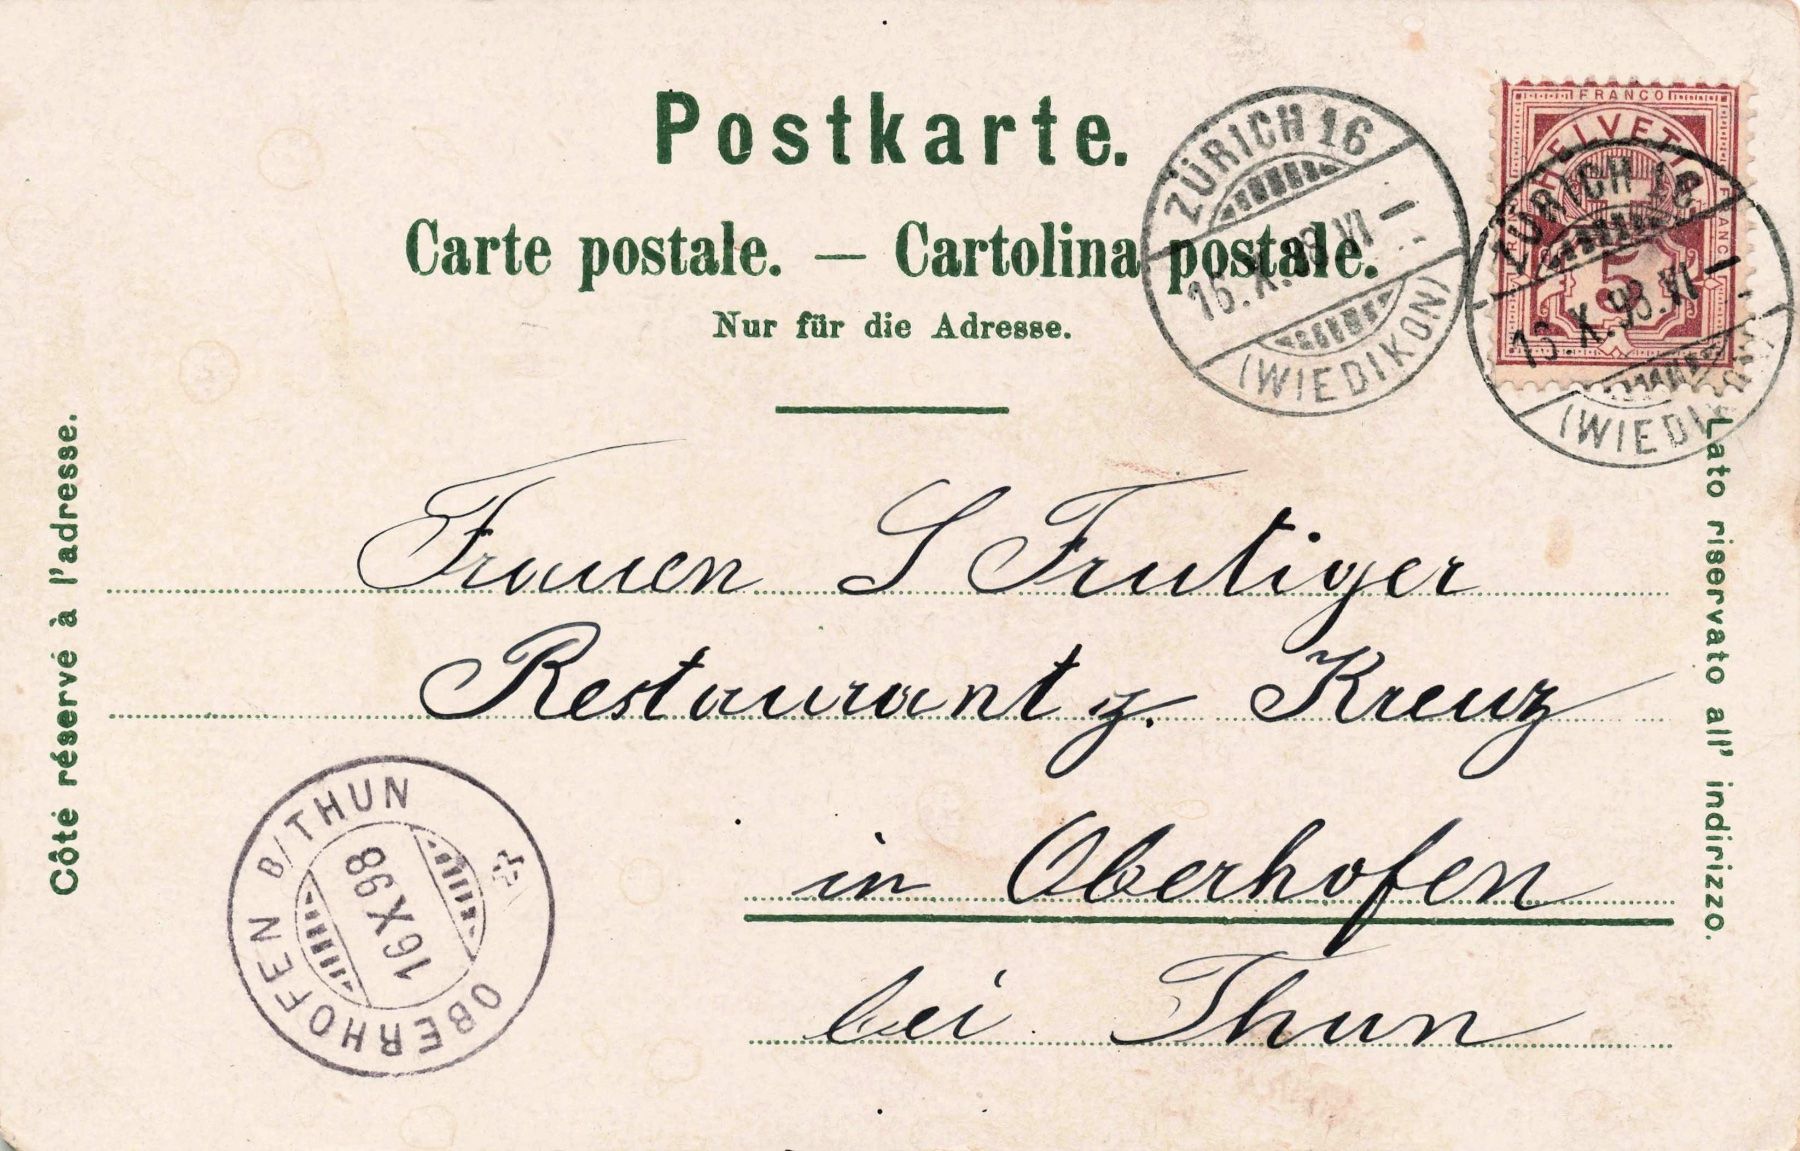 Postkarte.
Carte postale. — Cartolina postale.
Nur für die Adresse.
ZÜRICH 16
16.X.98.VI
(WIEDIKON)
FRANCO
HELVETIA
FRANCO
5
ZÜRICH 16
16.X.98.VI
(WIEDIKON)
Côté réservé à l'adresse.
Lato riservato all' indirizzo.
Frauen S Frutiger
Restaurant z. Kreuz
in Oberhofen
bei Thun
OBERHOFEN B/THUN
16 X 98